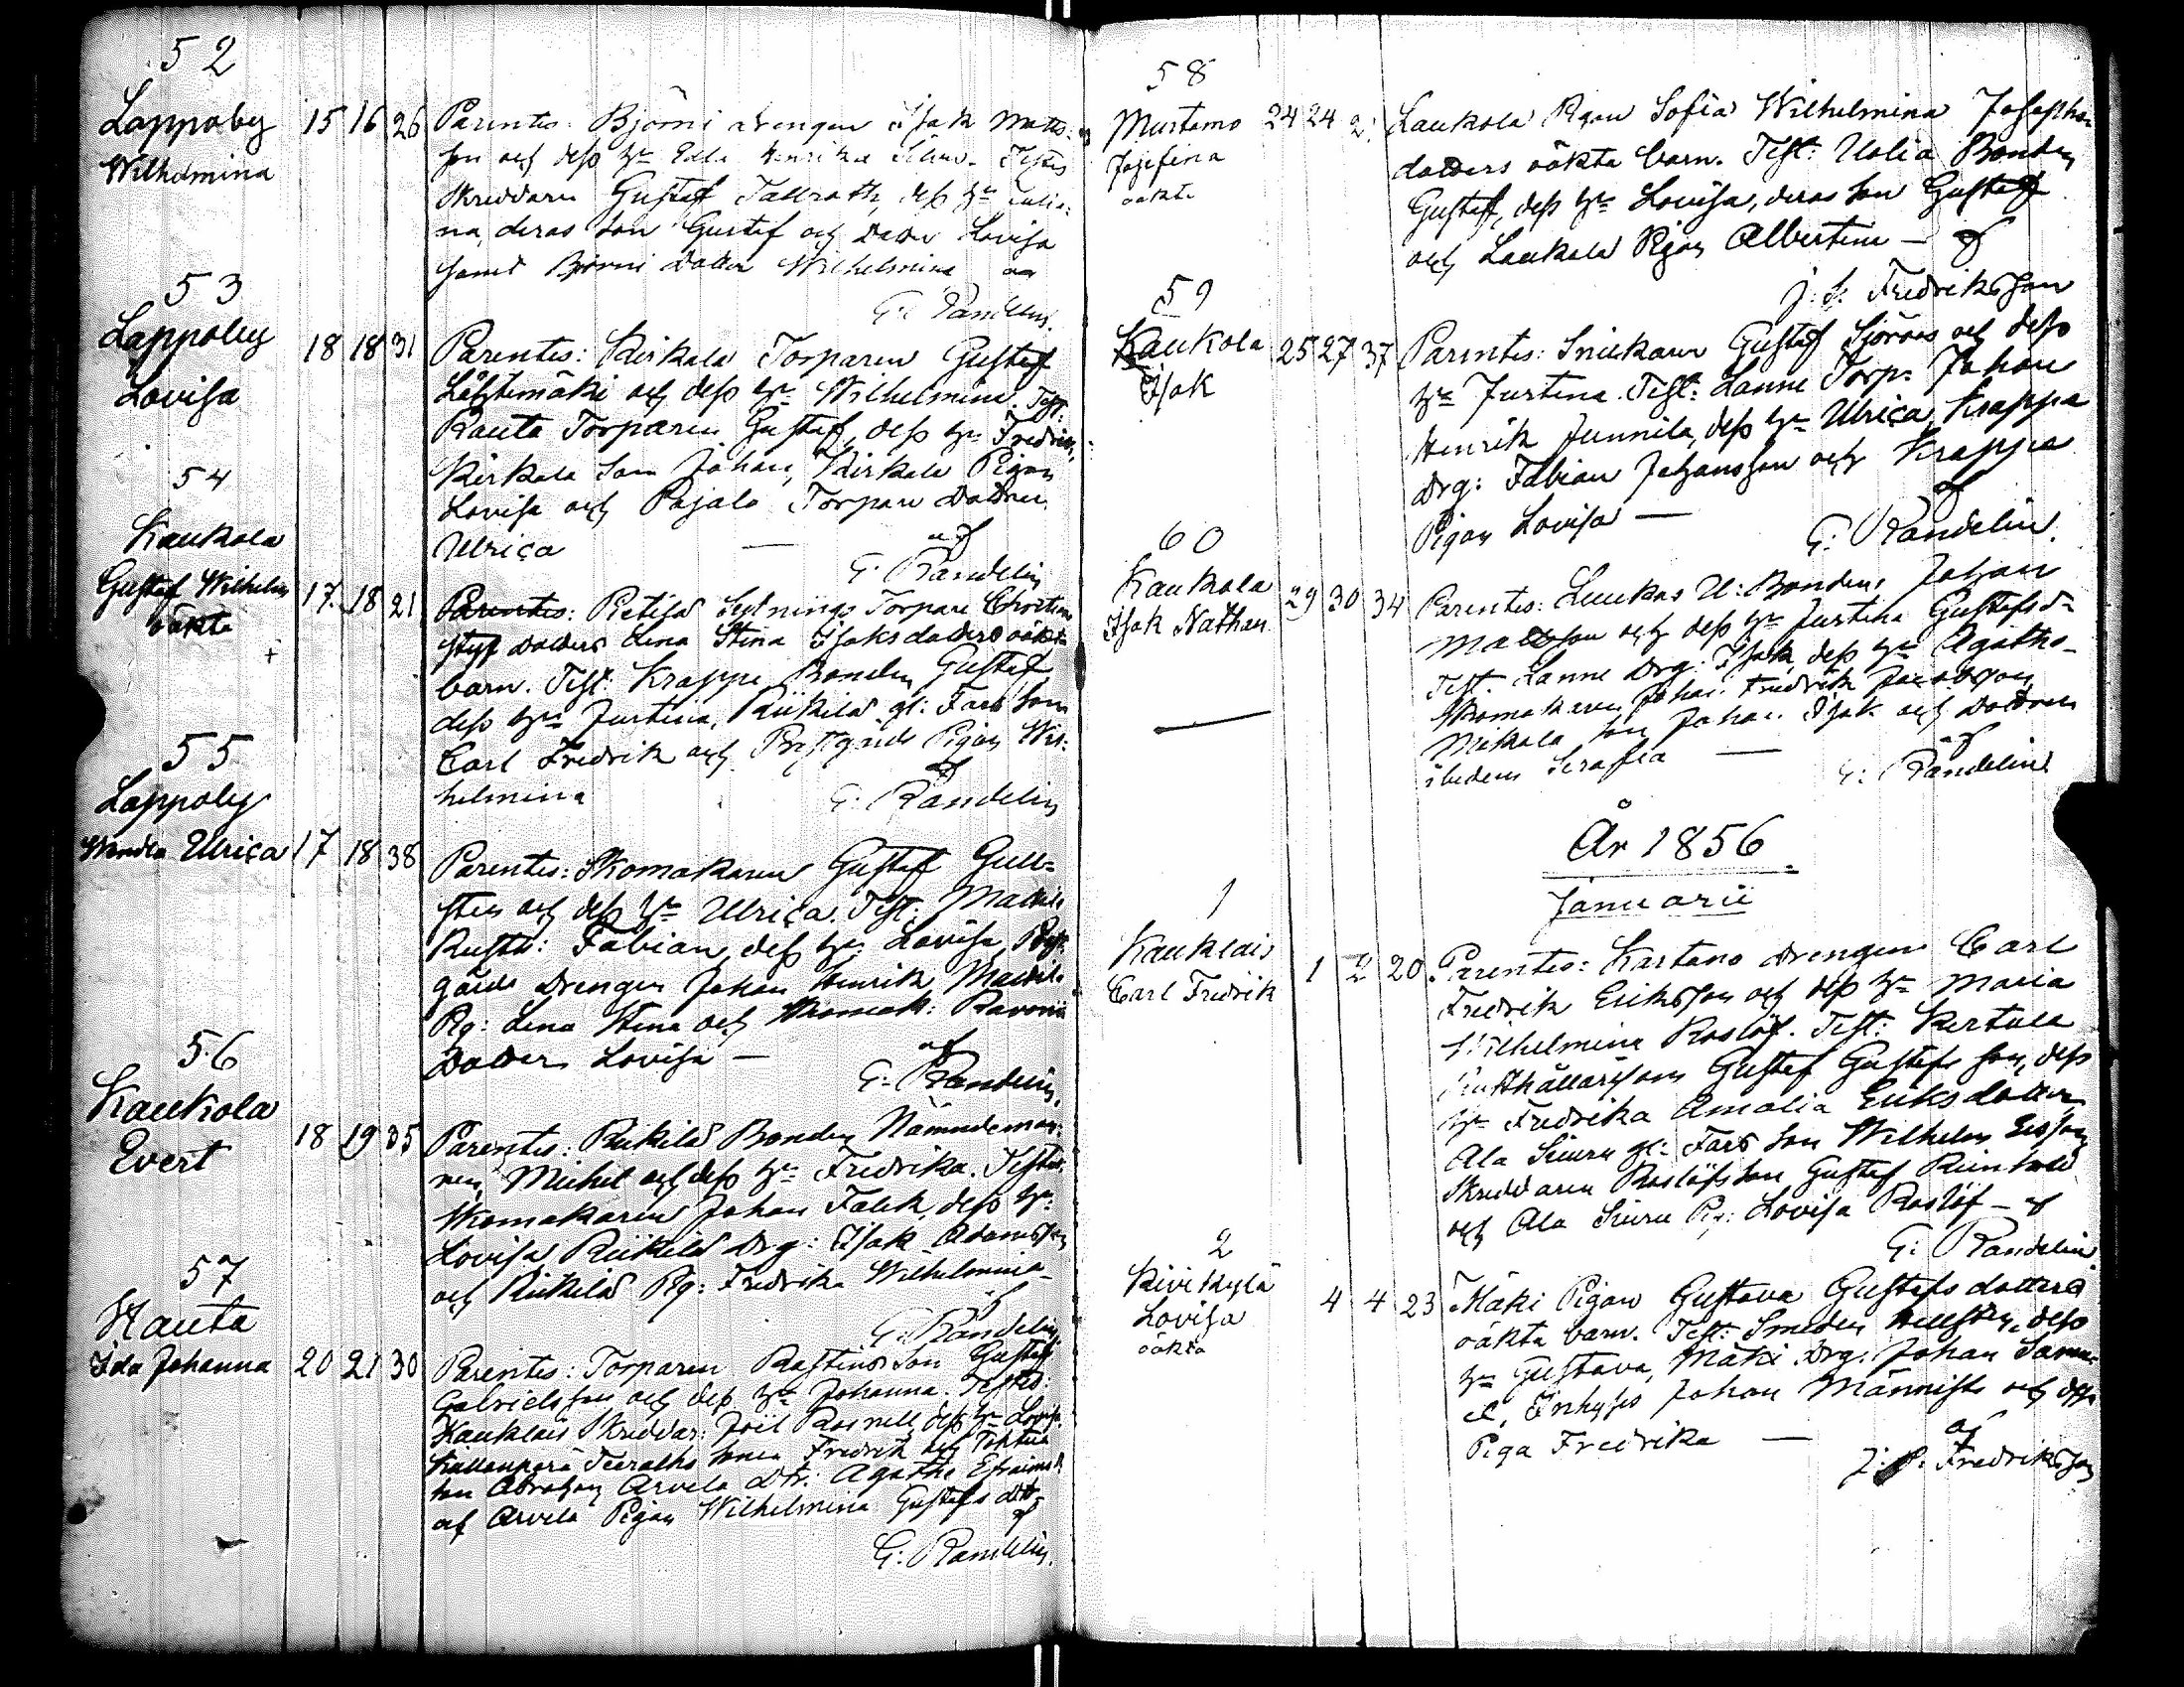 52
Lappoby
Wilhelmina
15 16 26
Parentes: Björni drengen Isak Matts-
son och dess hu Edla Henrika Testes
Skreddaren Gustaf Tallroth, dess hu Julia-
na, deras son Gustaf och Lovisa
samt Björni dotter Wilhelmina
G: Randelin.
53
Lappoby
Lovisa
18 18 31
Parentes: Kirkala Torparen Gustaf
Lähtemäki och dess hu Wilhelmina. Test:
Rauta Torparen Gustaf, dess hu Fredrica,
Kirkala Son Johan, Kirkala Pigan
Lovisa och Pajala Torpare Dottren
Ulrica — af
G: Randelin
54
Kaukola
Gustaf Wilhelm
oäkta
+
17. 18 21
Parentes: Pietilä Torpare
styf dotters Lena Stina Isaksdotters oäkta
barn. Test: Krappe Bonden Gustaf
dess hu Justina, Riikilä gl: Fars Son
Carl Fredrik och Prestgårds Pigan Wil-
helmina af
G: Randelin
55
Lappoby
Wendla Ulrica
17 18 38
Parentes: Skomakaren Gustaf Gull-
sten och dess hu Ulrica. Test: Mattila
Rusth: Fabian, dess hu Lovisa, Prest-
gårds Drengen Johan Henrik, Mattila
Pig: Lena Stina och Skomak:
Dotter Lovisa — af
G: Randelin.
56
Kaukola
Evert
18 19 35
Parentes: Riikilä Bonden Nämndeman-
nen, Michel och dess hu Fredrika. Testes
Skomakaren Johan Falck, dess hu
Lovisa, Riikilä Drg: Isak Adamsson
och Riikilä Pig: Fredrika Wilhelmina —
af
G: Randelin.
57
Hauta
Ida Johanna
20 21 30
Parentes: Torparen Rastins Son Gustaf
Gabrielsson och dess hu Johanna. Testes:
Kauklais Skreddar: Joël Rosnell, dess hu Lovisa,
Fredrik och
son Abraham, Arvela Dtr: Agatha Efraimsd
och Arvela Pigan Wilhelmina Gustafs dtr
af
G: Randelin.
58
Mustamo
Josefina
oäkta
24 24 2
Laukola Pigan Sofia Wilhelmina Josephs-
dotters oäkta barn. Test: Uotia Bonden
Gustaf, dess hu Lovisa, deras son Gustaf
och Laukola Pigan Albertina — af
J: S: Fredriksson
59
Kaukola
Isak
25 27 37
Parentes: Snickaren Gustaf Sjöroos och dess
hu Justina. Test: Lanne Torp: Johan
Henrik Junnila, dess hu Ulrica, Krappa
drg: Fabian Johansson och Krappa
Pigan Lovisa — af
G: Randelin.
60
Kaukola
Isak Nathan
29 30 34
Parentes: Luukas U: Bonden Johan
Mattsson och dess hu Justina Gustafsd-
Test. Lanne Drg: Isak, dess hu Agatha—
Skomakaren Johan Fredrik Jacobsson,
Mikola Son Johan Isak och Dottren
Serafia — af
G: Randelin
År 1856
Januarii
1
Kauklais
Carl Fredrik
1 2 20
Parentes: Kartano drengen Carl
Fredrik Eriksson och dess hu Maria
Wilhelmina Roslöf. Test: Kertula
Rusthållarson Gustaf Gustafsson, dess
hu Fredrika Amalia Eriksdotter
Ala Siuru gl: Fars Son Wilhelm Esason
Skreddaren Roslöfs Son Gustaf Reinhold
och Ala Siuru Pig: Lovisa Roslöf — af
G: Randelin.
2
Kivikylä
Lovisa
oäkta
4 4 23
Mäki Pigan Gustava Gustafs dotters
oäkta barn. Test: Smeden Hellsten, dess
hu Gustava, Mäki Drg: Johan Samu-
el, Inhyses Johan Männistö och dess
Piga Fredrika — af
J: S: Fredriksson